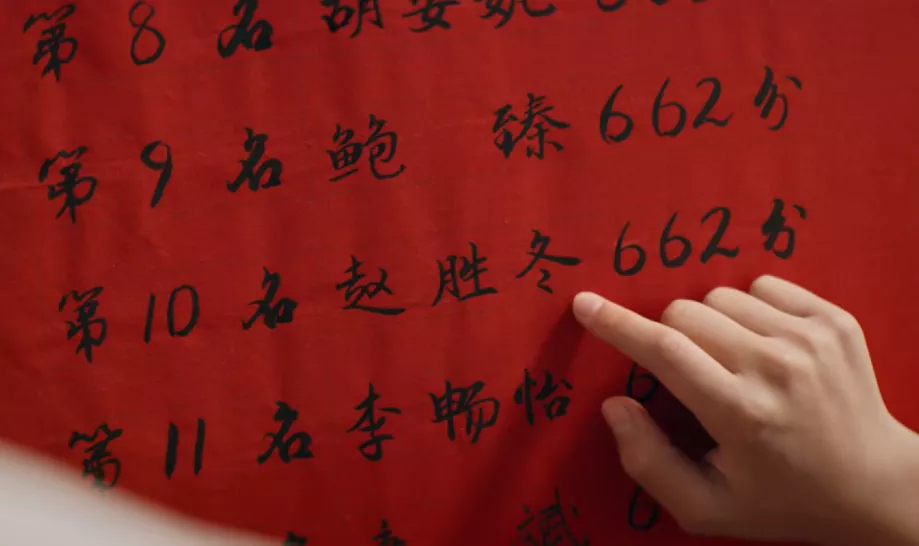 第8名 胡安妮 66
第9名 鲍 臻 662分
第10名 赵胜冬 662分
第11名 李畅怡 6
斌 6